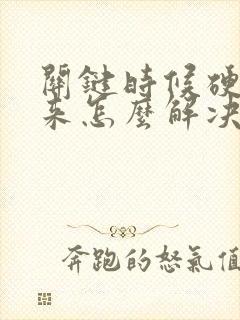 關鍵時候硬
來怎麼解決
奔跑的怒氣值